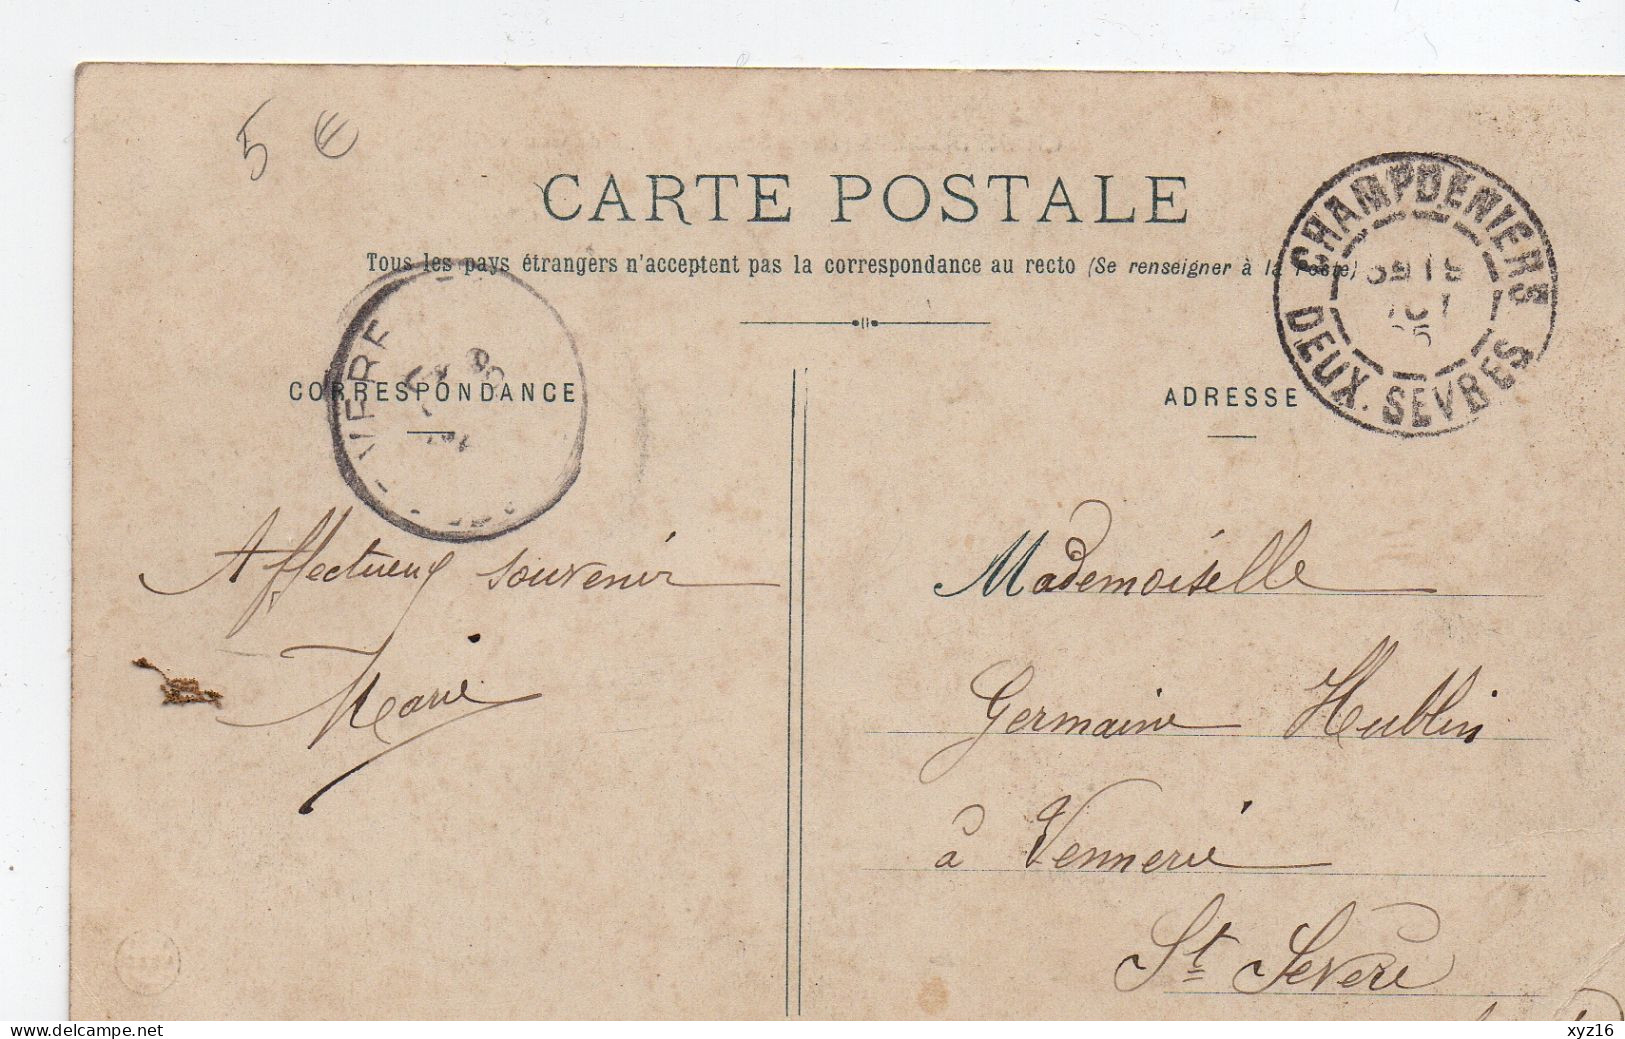 5 €
CARTE POSTALE
Tous les pays étrangers n'acceptent pas la correspondance au recto (Se renseigner à la Poste)
CHAMPDENIERS
DEUX-SEVRES
CORRESPONDANCE
ADRESSE
Affectueux souvenir
Marie
Mademoiselle
Germaine Hublin
à Vennerie
St Severe
www.delcampe.net
xyz16